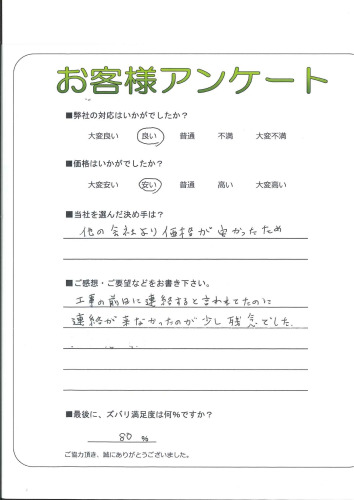 お客様アンケート
■弊社の対応はいかがでしたか?
大変良い 良い 普通 不満 大変不満
■価格はいかがでしたか?
大変安い 安い 普通 高い 大変高い
■当社を選んだ決め手は?
他の会社より価格が安かったため
■ご感想・ご要望などをお書き下さい。
工事の前日に連絡すると言われてたのに
連絡が来なかったのが少し残念でした.
■最後に、ズバリ満足度は何%ですか?
80 %
ご協力頂き、誠にありがとうございました。